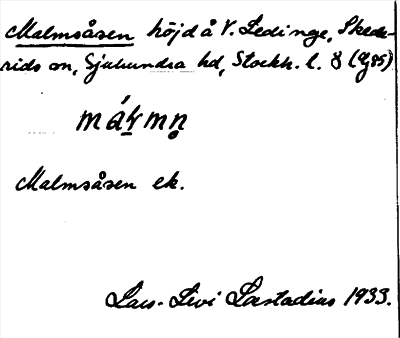 Malmsåsen höjd å V. Ledinge, Skede-
rids sn, Sjuhundra hd, Stockh. l. 8 (Gg 85)
Malmsåsen ek.
Lars-Levi Læstadius 1933.